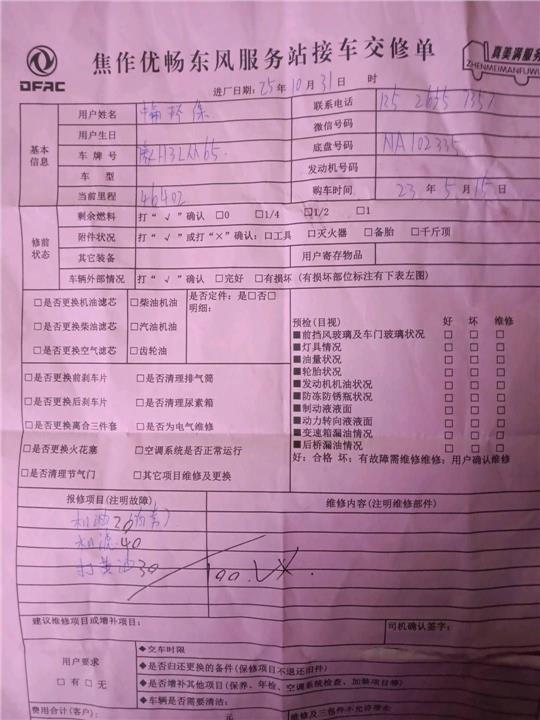 DFAC
焦作优畅东风服务站接车交修单
真美满服务
ZHENMEIMANFUWU
进厂日期：25年10月31日 时
基本信息
用户姓名
联系电话
用户生日
微信号码
车牌号
底盘号码 NA102335
车型
发动机号码
当前里程 46402
购车时间 23年5月15日
修前状态
剩余燃料 打“√”确认 □0 □1/4 □1/2 □1
附件状况 打“√”或打“×”确认：□工具 □灭火器 □备胎 □千斤顶
其它装备
用户寄存物品
车辆外部情况 打“√”确认 □完好 □有损坏（有损坏部位标注有下表左图）
□是否更换机油滤芯 □柴油机油 是否定件：是□否□
明细：
□是否更换柴油滤芯 □汽油机油
□是否更换空气滤芯 □齿轮油
预检(目视) 好 坏 维修
■前挡风玻璃及车门玻璃状况 □ □ □
■灯具情况 □ □ □
■油量状况 □ □ □
■轮胎状况 □ □ □
■发动机机油状况 □ □ □
■防冻防锈瓶状况 □ □ □
■制动液液面 □ □ □
■动力转向液液面 □ □ □
■变速箱漏油情况 □ □ □
■后桥漏油情况 □ □ □
好：合格 坏：有故障需维修维修：用户确认维修
□是否更换前刹车片 □是否清理排气筒
□是否更换后刹车片 □是否清理尿素箱
□是否更换离合三件套 □是否为电气维修
□是否更换火花塞 □空调系统是否正常运行
□是否清理节气门 □其它项目维修及更换
报修项目(注明故障)
维修内容(注明维修部件)
机油20
机滤40
打黄油30
100.VX.
建议维修项目或增补项目：
司机确认签字：
用户要求
□有□无
◆交车时限
◆是否归还更换的备件(保修项目不退还旧件)
◆是否增补其他项目(保养、年检、空调系统检查、加装项目等)
◆车辆是否需要清洁：
费用合计(客户)： 元
维修及三包件不允许带走